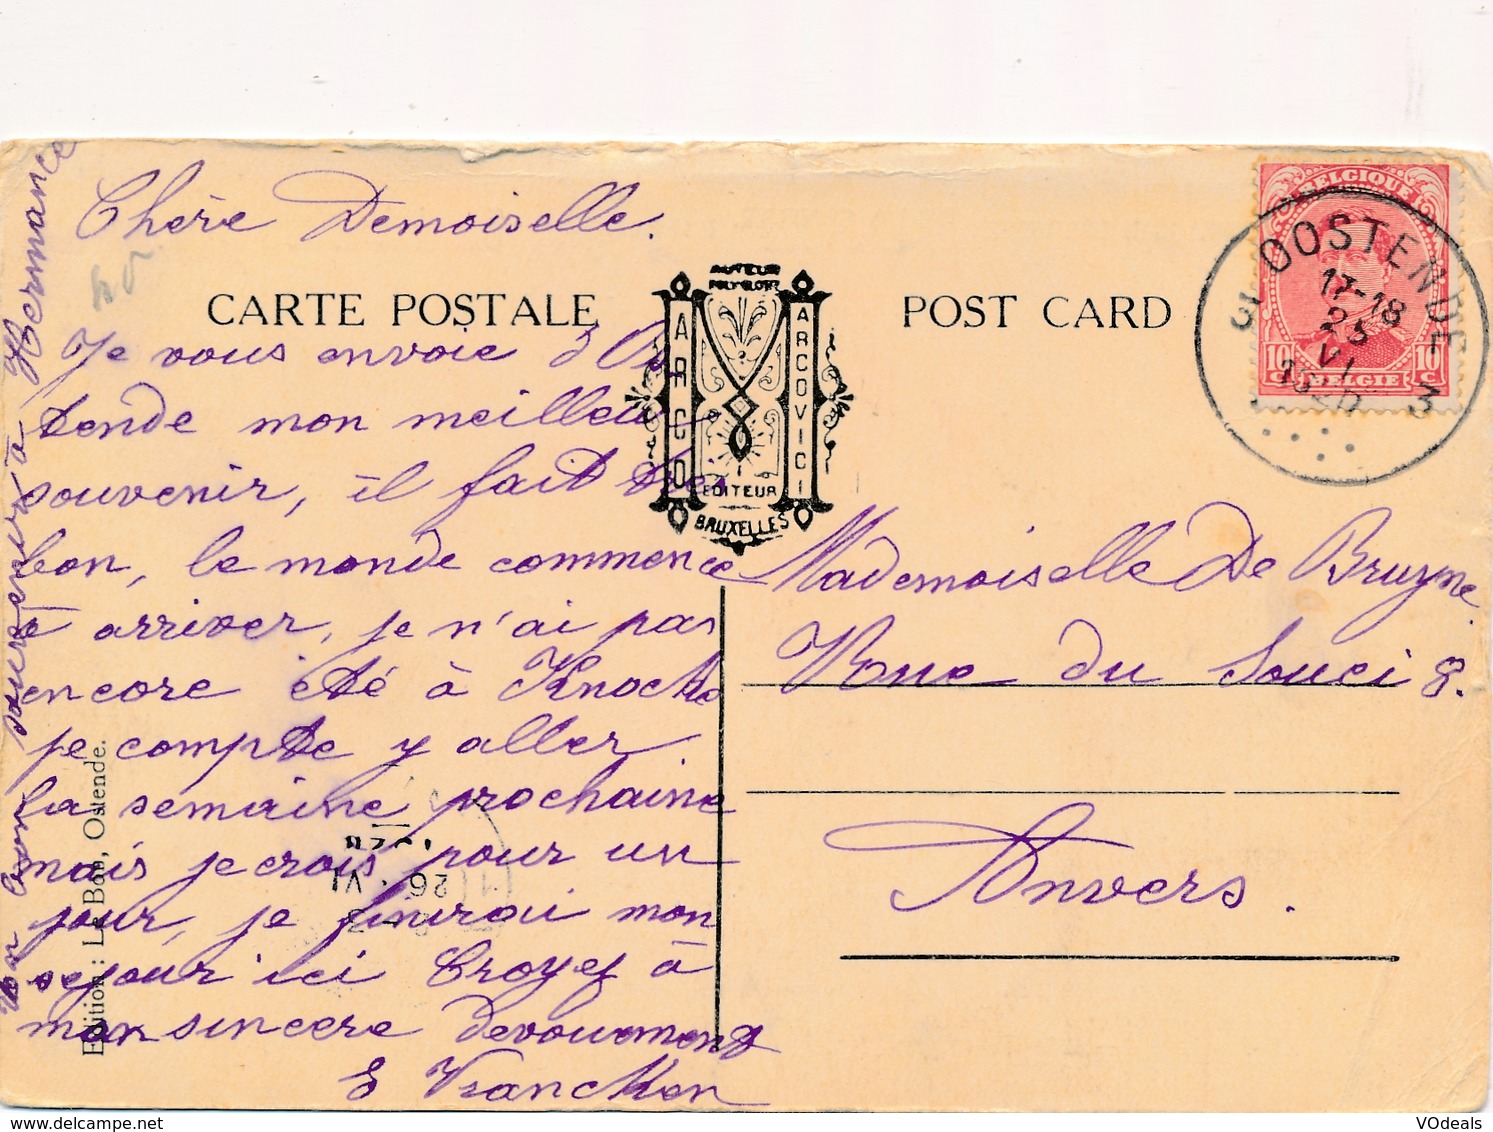 Chère Demoiselle.
CARTE POSTALE
POST CARD
AUTEUR
POLYGLOTT
ARGO
ARCOVICI
EDITEUR
BRUXELLES
BELGIQUE
10 c 10 c
BELGIE
OOSTENDE
17-18
25
VI
1920
3 3
Je vous envoie d'Os
tende mon meilleur
souvenir, il fait très
bon, le monde commence
à arriver, je n'ai pas
encore été à Knocke
je compte y aller
la semaine prochaine
mais je crois pour un
jour, je finirai mon
sejour ici Croyez à
mon sincere devoument
E Vrancken
bon souvenir à Hermance
Mademoiselle De Bruyne.
Rue du Souci 8.
Anvers.
Edition : Le Bon, Ostende.
26 VI
VOdeals